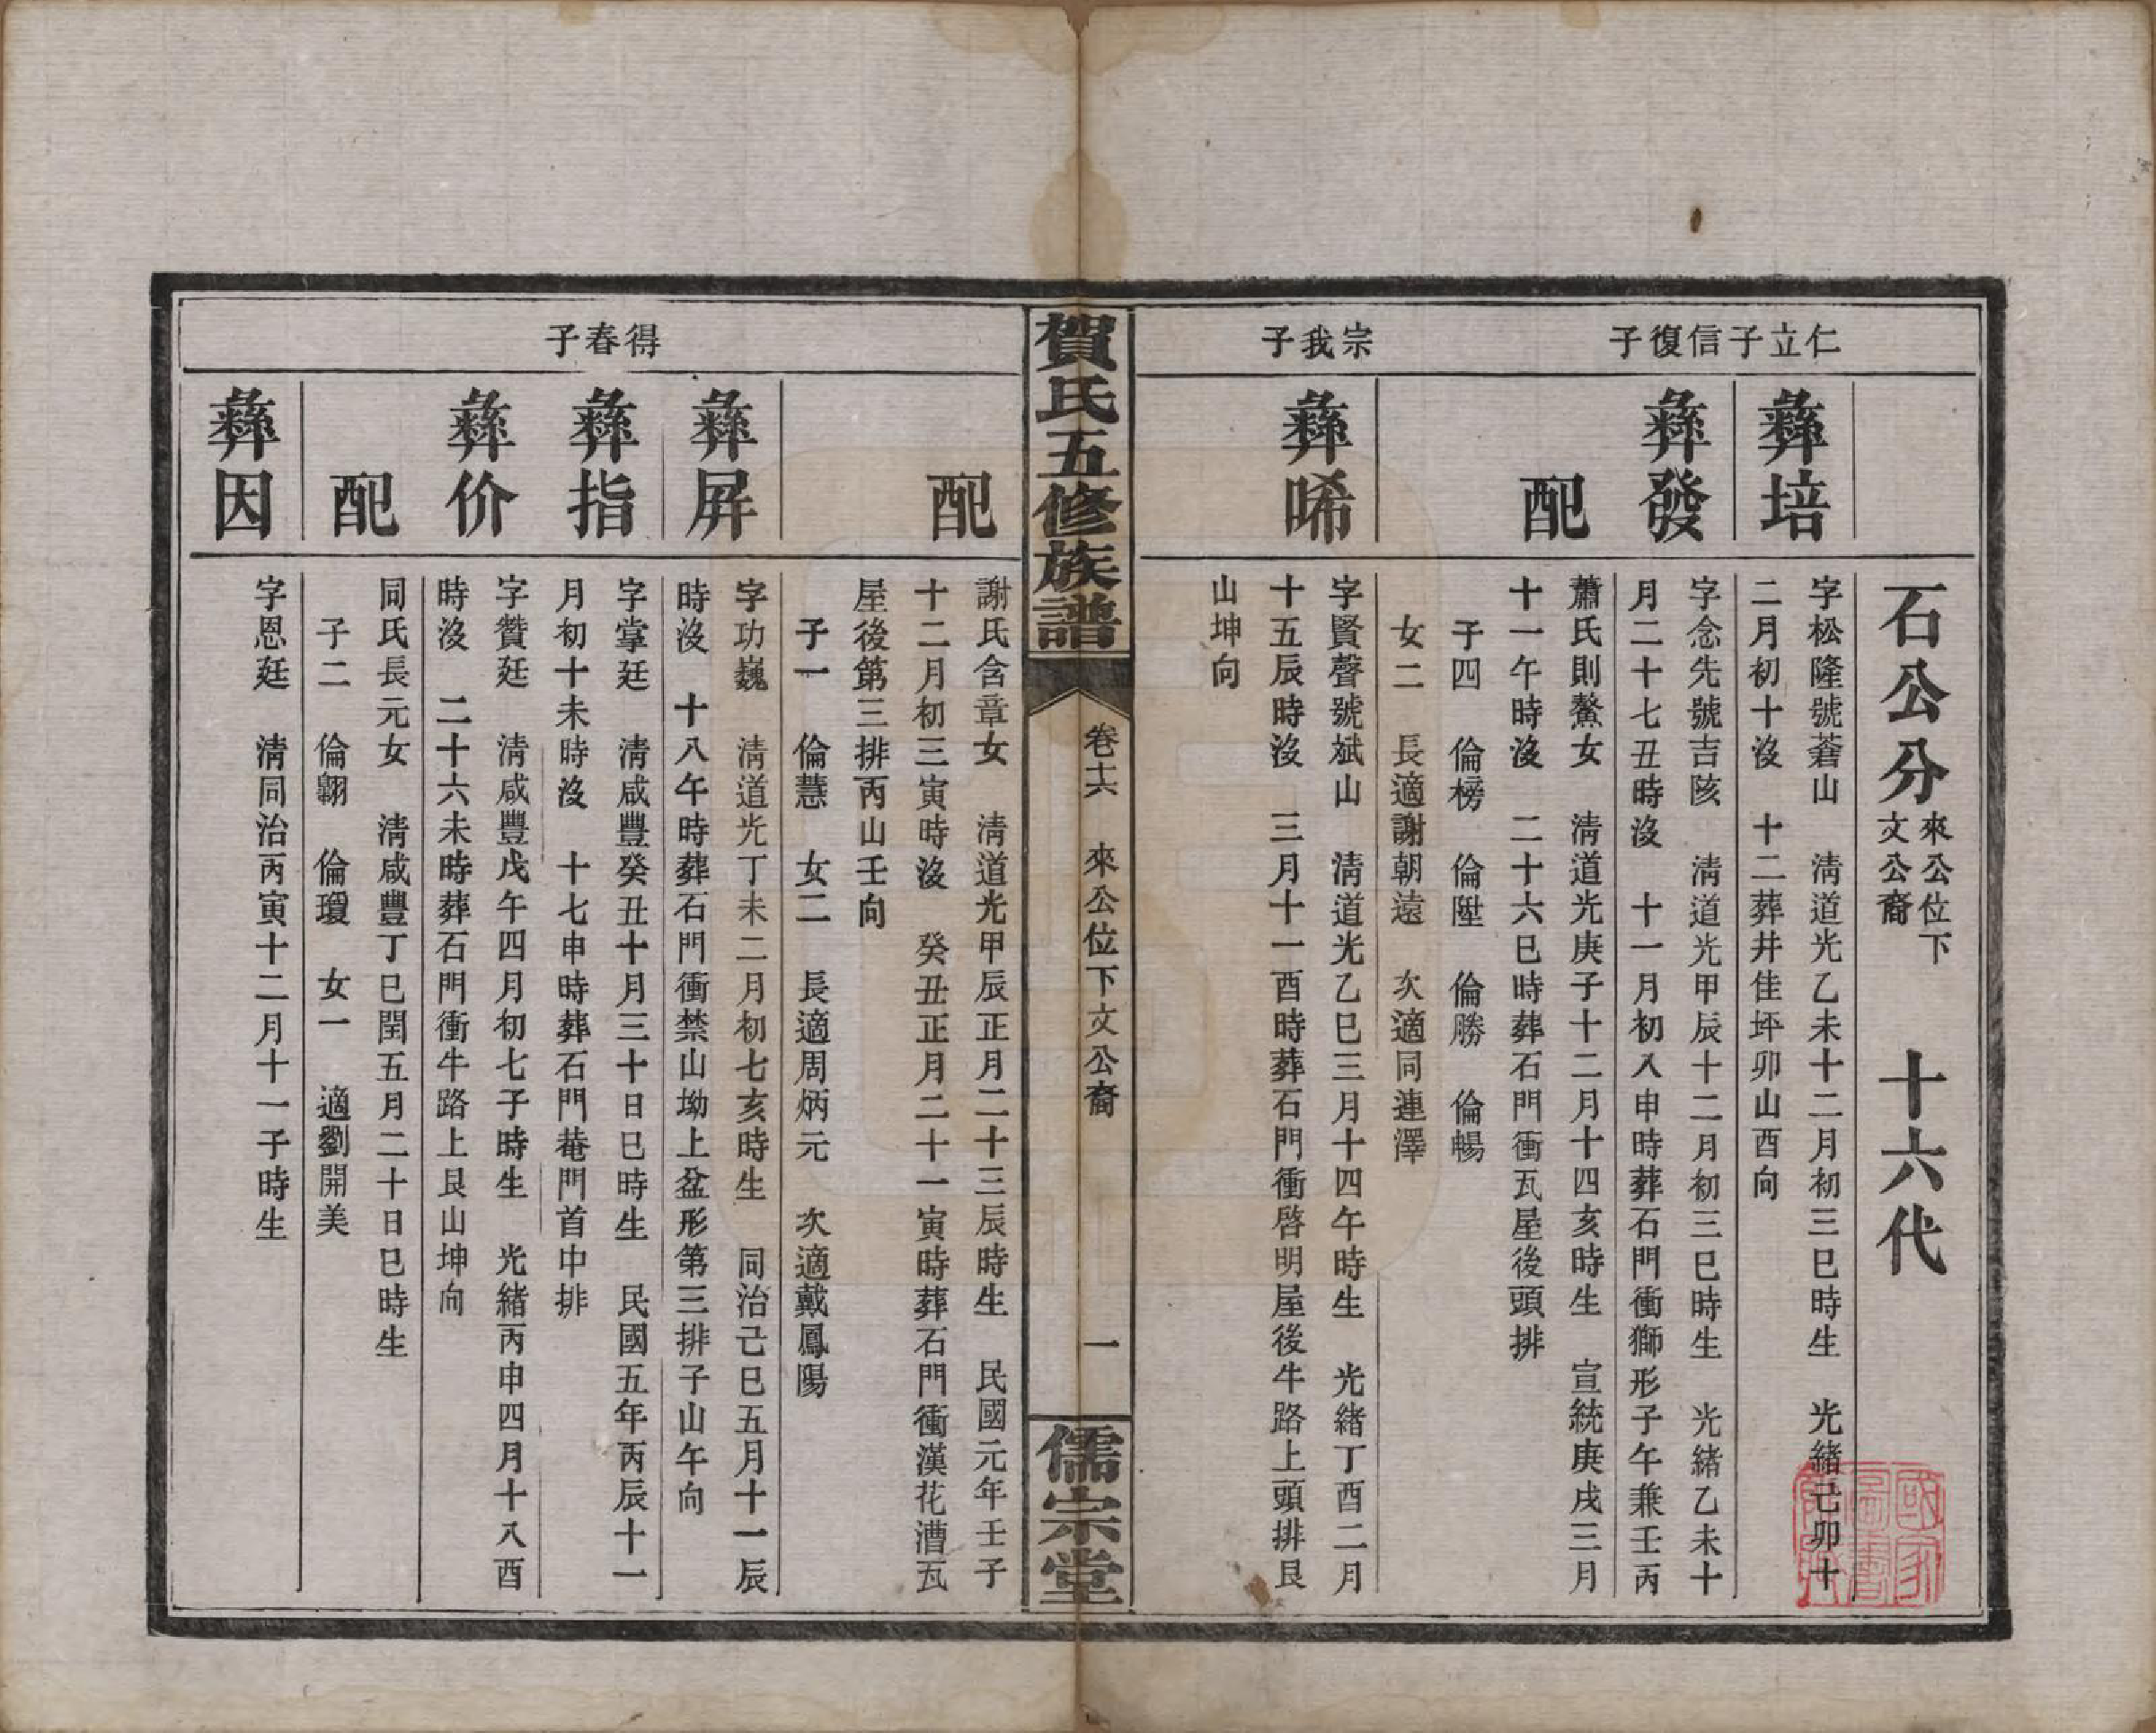 石公分 來公位下文公裔 十六代
仁立子
彝培
字松隆號蒼山 清道光乙未十二月初三巳時生 光緒己卯十
二月初十沒 十二葬井佳坪卯山酉向
信復子
彝發
字念先號吉陔 清道光甲辰十二月初三巳時生 光緒乙未十
月二十七丑時沒 十一月初八申時葬石門衝獅形子午兼壬丙
配
蕭氏則鰲女 清道光庚子十二月十四亥時生 宣統庚戌三月
十一午時沒 二十六巳時葬石門衝瓦屋後頭排
子四 倫榜 倫陞 倫勝 倫暢
女二 長適謝朝遠 次適同連澤
宗我子
彝唏
字賢聲號斌山 清道光乙巳三月十四午時生 光緒丁酉二月
十五辰時沒 三月十一酉時葬石門衝啓明屋後牛路上頭排艮
山坤向
賀氏五修族譜 卷十六 來公位下文公裔 一 儒宗堂
配
謝氏含章女 清道光甲辰正月二十三辰時生 民國元年壬子
十二月初三寅時沒 癸丑正月二十一寅時葬石門衝漢花漕瓦
屋後第三排丙山壬向
子一 倫慧 女二 長適周炳元 次適戴鳳陽
得春子
彝屏
字功巍 清道光丁未二月初七亥時生 同治己巳五月十一辰
時沒 十八午時葬石門衝禁山坳上盆形第三排子山午向
彝指
字掌廷 清咸豐癸丑十月三十日巳時生 民國五年丙辰十一
月初十未時沒 十七申時葬石門菴門首中排
彝价
字贊廷 清咸豐戊午四月初七子時生 光緒丙申四月十八酉
時沒 二十六未時葬石門衝牛路上艮山坤向
配
同氏長元女 清咸豐丁巳閏五月二十日巳時生
子二 倫翺 倫瓊 女一 適劉開美
彝因
字恩廷 清同治丙寅十二月十一子時生